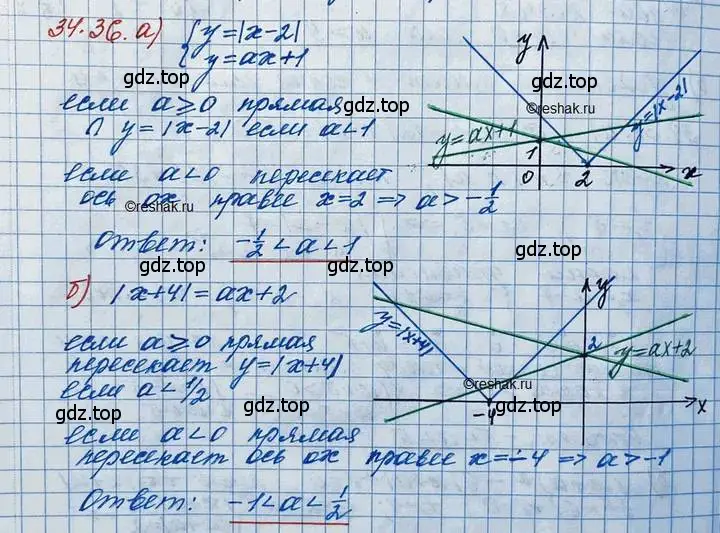 34.36. а) { y = |x-2|
y = ax+1
если a ⩾ 0 прямая
∩ y = |x-2| если a < 1
если a < 0 пересекает
ось ox правее x = 2 => a > -1/2
Ответ: -1/2 < a < 1
y
y = ax+1
y=|x-2|
1
0 2 x
б) |x+4| = ax+2
если a ⩾ 0 прямая
пересекает y = |x+4|
если a < 1/2
если a < 0 прямая
пересекает ось ox правее x = -4 => a > -1
Ответ: -1 < a < 1/2
y
y=|x+4|
2
y=ax+2
-4 x
gdz.top
gdz.top
gdz.top
gdz.top
gdz.top
gdz.top
gdz.top
gdz.top
gdz.top
gdz.top
gdz.top
gdz.top
©reshak.ru
©reshak.ru
©reshak.ru